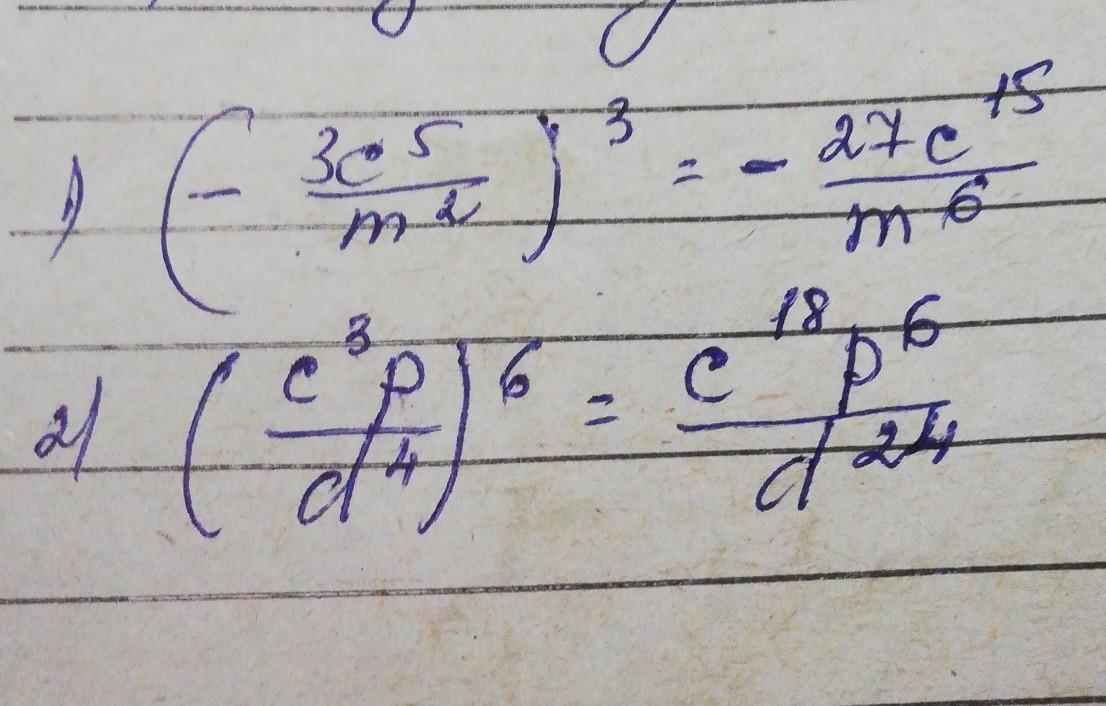 1) (- 3c⁵/m²)³ = - 27c¹⁵/m⁶
2) (c³p/d⁴)⁶ = c¹⁸p⁶/d²⁴